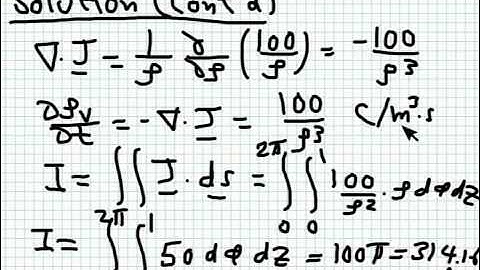 Solution (Cont'd)
∇·J = 1/ρ ∂/∂ρ (100/ρ) = -100/ρ³
∂ρv/∂t = -∇·J = 100/ρ³ C/m³·s
I = ∫∫ J·ds = ∫₀^2π ∫₀^1 100/ρ² · ρ dφ dz
I = ∫^2π ∫^1 50 dφ dz = 100π = 314.16